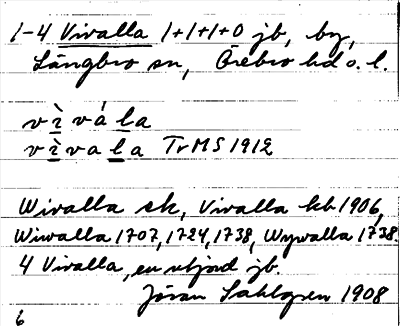 1-4 Vivalla 1+1+1+0 jb, by,
Längbro sn, Örebro hd o. l.
v ì v á l a
v ì v a l a TrMS 1912
Wivalla sk, Vivalla kb 1906,
Wiwalla 1707, 1724, 1738, Wywalla 1738.
4 Vivalla, en utjord jb.
Jöran Sahlgren 1908
6